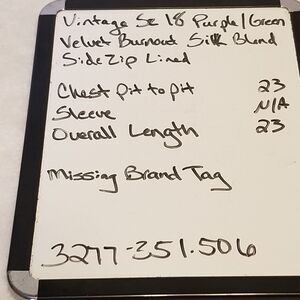 Vintage Sz 18 Purple/Green
Velvet Burnout Silk Blend
Side Zip Lined
Chest Pit to Pit 23
Sleeve N/A
Overall Length 23
Missing Brand Tag
3277-351.506